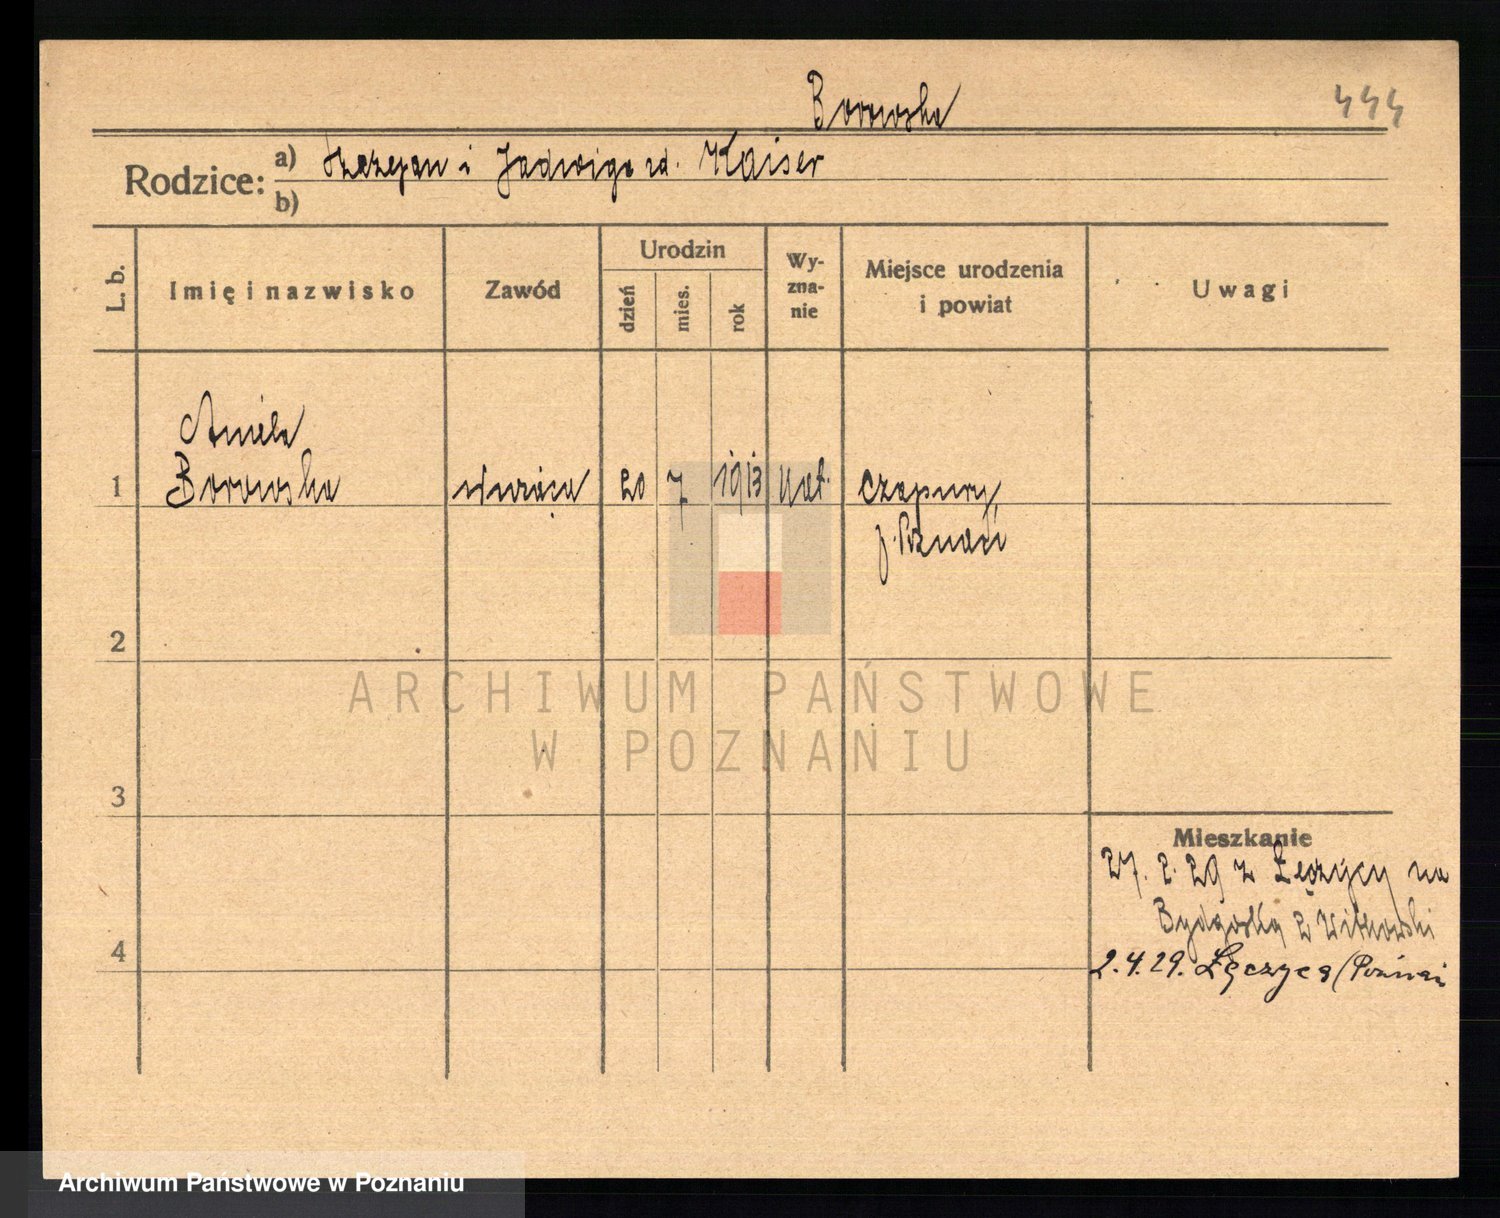 Borowska
444
Rodzice: a) Szczepan i Jadwiga zd. Kaiser
b)
L. b.
Imię i nazwisko
Zawód
Urodzin
dzień
mies.
rok
Wy-
zna-
nie
Miejsce urodzenia
i powiat
Uwagi
Aniela
1 Borowska 20 7 1913 kat. Czapury
p. Poznań
2
ARCHIWUM PAŃSTWOWE
W POZNANIU
3
Mieszkanie
27. 2. 29 z Łęczycy na
Bydgoską 2 Witkowski
4
2.4.29. Łęczyca (Poznań
Archiwum Państwowe w Poznaniu